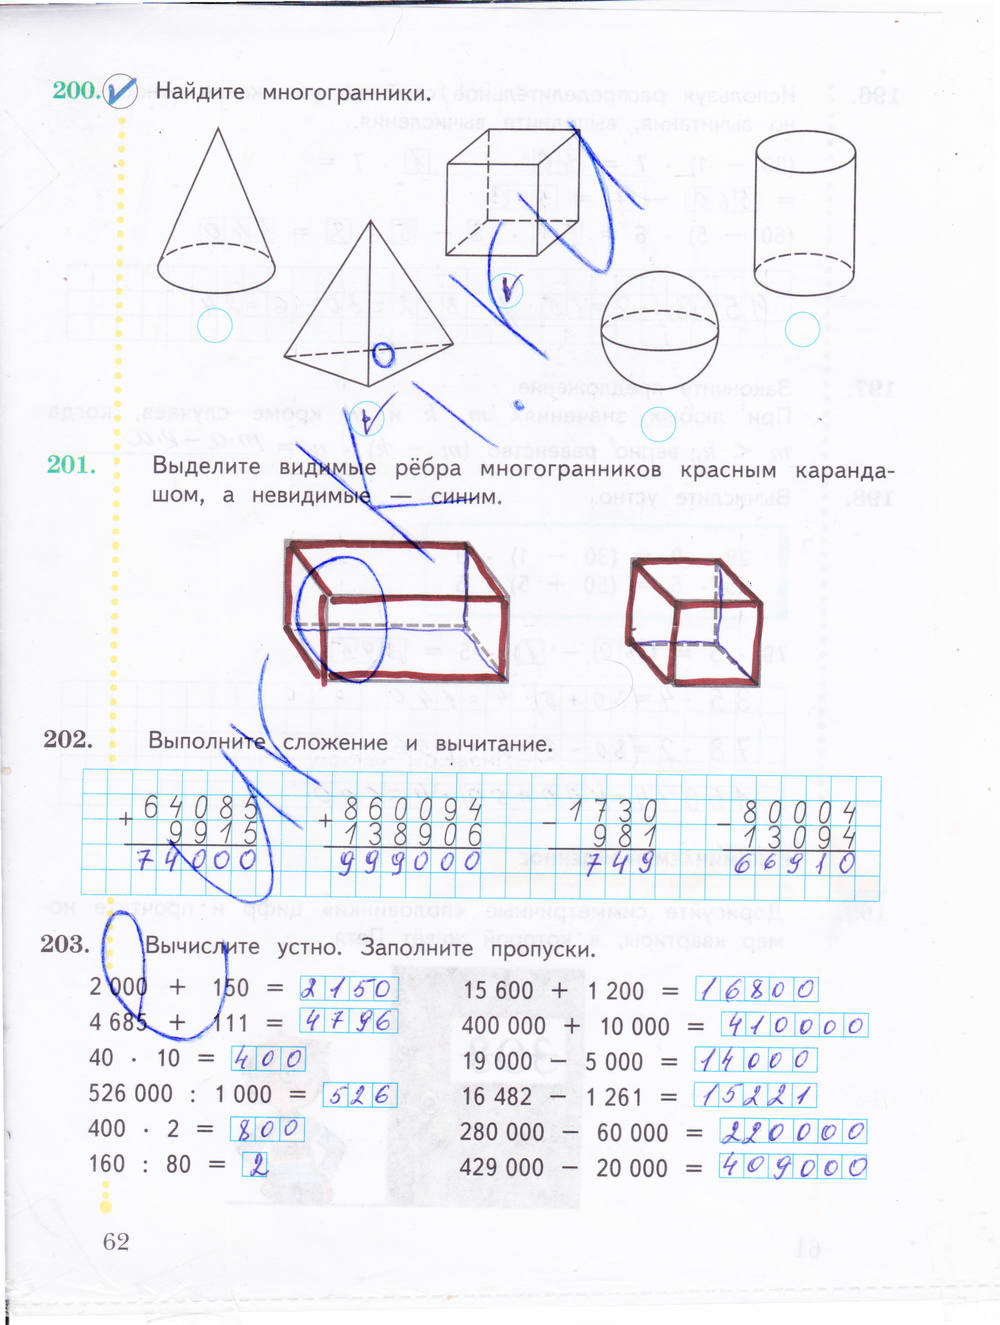 200. Найдите многогранники.
201. Выделите видимые рёбра многогранников красным каранда-
шом, а невидимые — синим.
202. Выполните сложение и вычитание.
+ 64085 + 860094 − 1730 − 80004
9915 138906 981 13094
74000 999000 749 66910
203. Вычислите устно. Заполните пропуски.
2 000 + 150 = 2150
4 685 + 111 = 4796
40 · 10 = 400
526 000 : 1 000 = 526
400 · 2 = 800
160 : 80 = 2
15 600 + 1 200 = 16800
400 000 + 10 000 = 410000
19 000 − 5 000 = 14000
16 482 − 1 261 = 15221
280 000 − 60 000 = 220000
429 000 − 20 000 = 409000
62